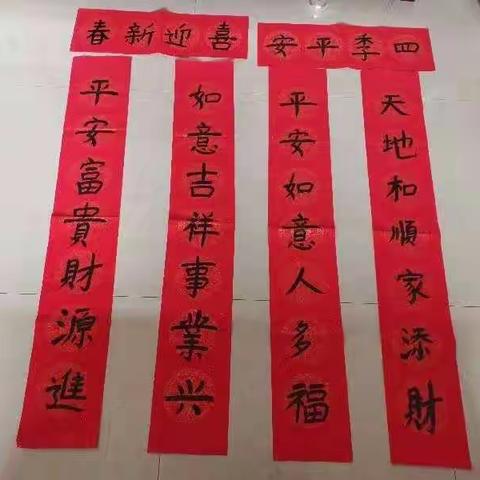 四季平安
天地和順家添財
平安如意人多福
喜迎新春
如意吉祥事業兴
平安富貴財源進